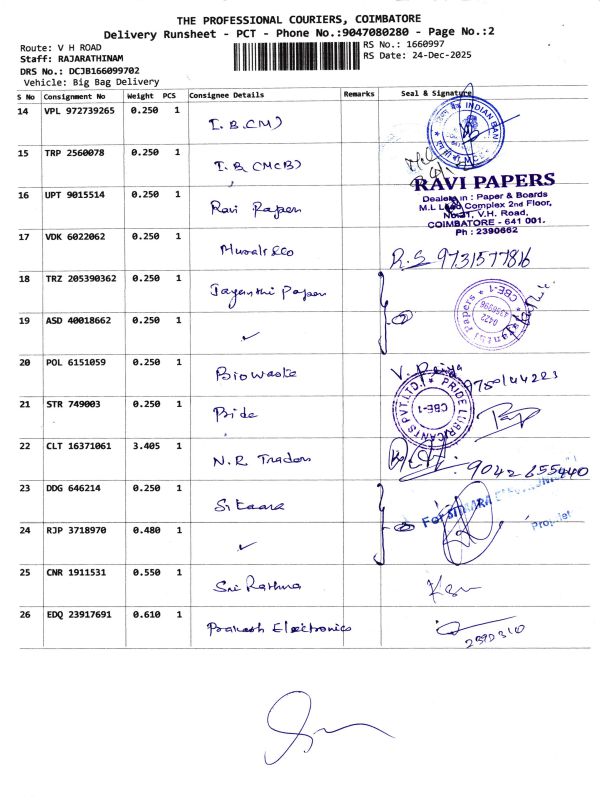 THE PROFESSIONAL COURIERS, COIMBATORE
Delivery Runsheet - PCT - Phone No.:9047080280 - Page No.:2
Route: V H ROAD
RS No.: 1660997
Staff: RAJARATHINAM
RS Date: 24-Dec-2025
DRS No.: DCJB166099702
Vehicle: Big Bag Delivery
S No Consignment No Weight PCS Consignee Details Remarks Seal & Signature
14 VPL 972739265 0.250 1 I.B.(M) INDIAN BANK
15 TRP 2560078 0.250 1 I.B (MCB)
16 UPT 9015514 0.250 1 Ravi Papers
RAVI PAPERS
Dealers in : Paper & Boards
M.L Complex 2nd Floor,
No.31, V.H. Road,
COIMBATORE - 641 001.
Ph : 2390662
17 VDK 6022062 0.250 1 Murali &Co R.S 9731577816
18 TRZ 205390362 0.250 1 Jayanthi Paper
Papers * CBE-1 *
0422
19 ASD 40018662 0.250 1 ✓
20 POL 6151059 0.250 1 Biowaste V. Priya
21 STR 749003 0.250 1 Pride
PRIDE LUBRICANTS PVT.LTD. *
CBE-1
22 CLT 16371061 3.405 1 N.R Traders 9042655440
23 DDG 646214 0.250 1 Sitaara
For SITAARA
Propriet
24 RJP 3718970 0.480 1 ✓
25 CNR 1911531 0.550 1 Sri Rathna
26 EDQ 23917691 0.610 1 Prakash Electronics 2390310